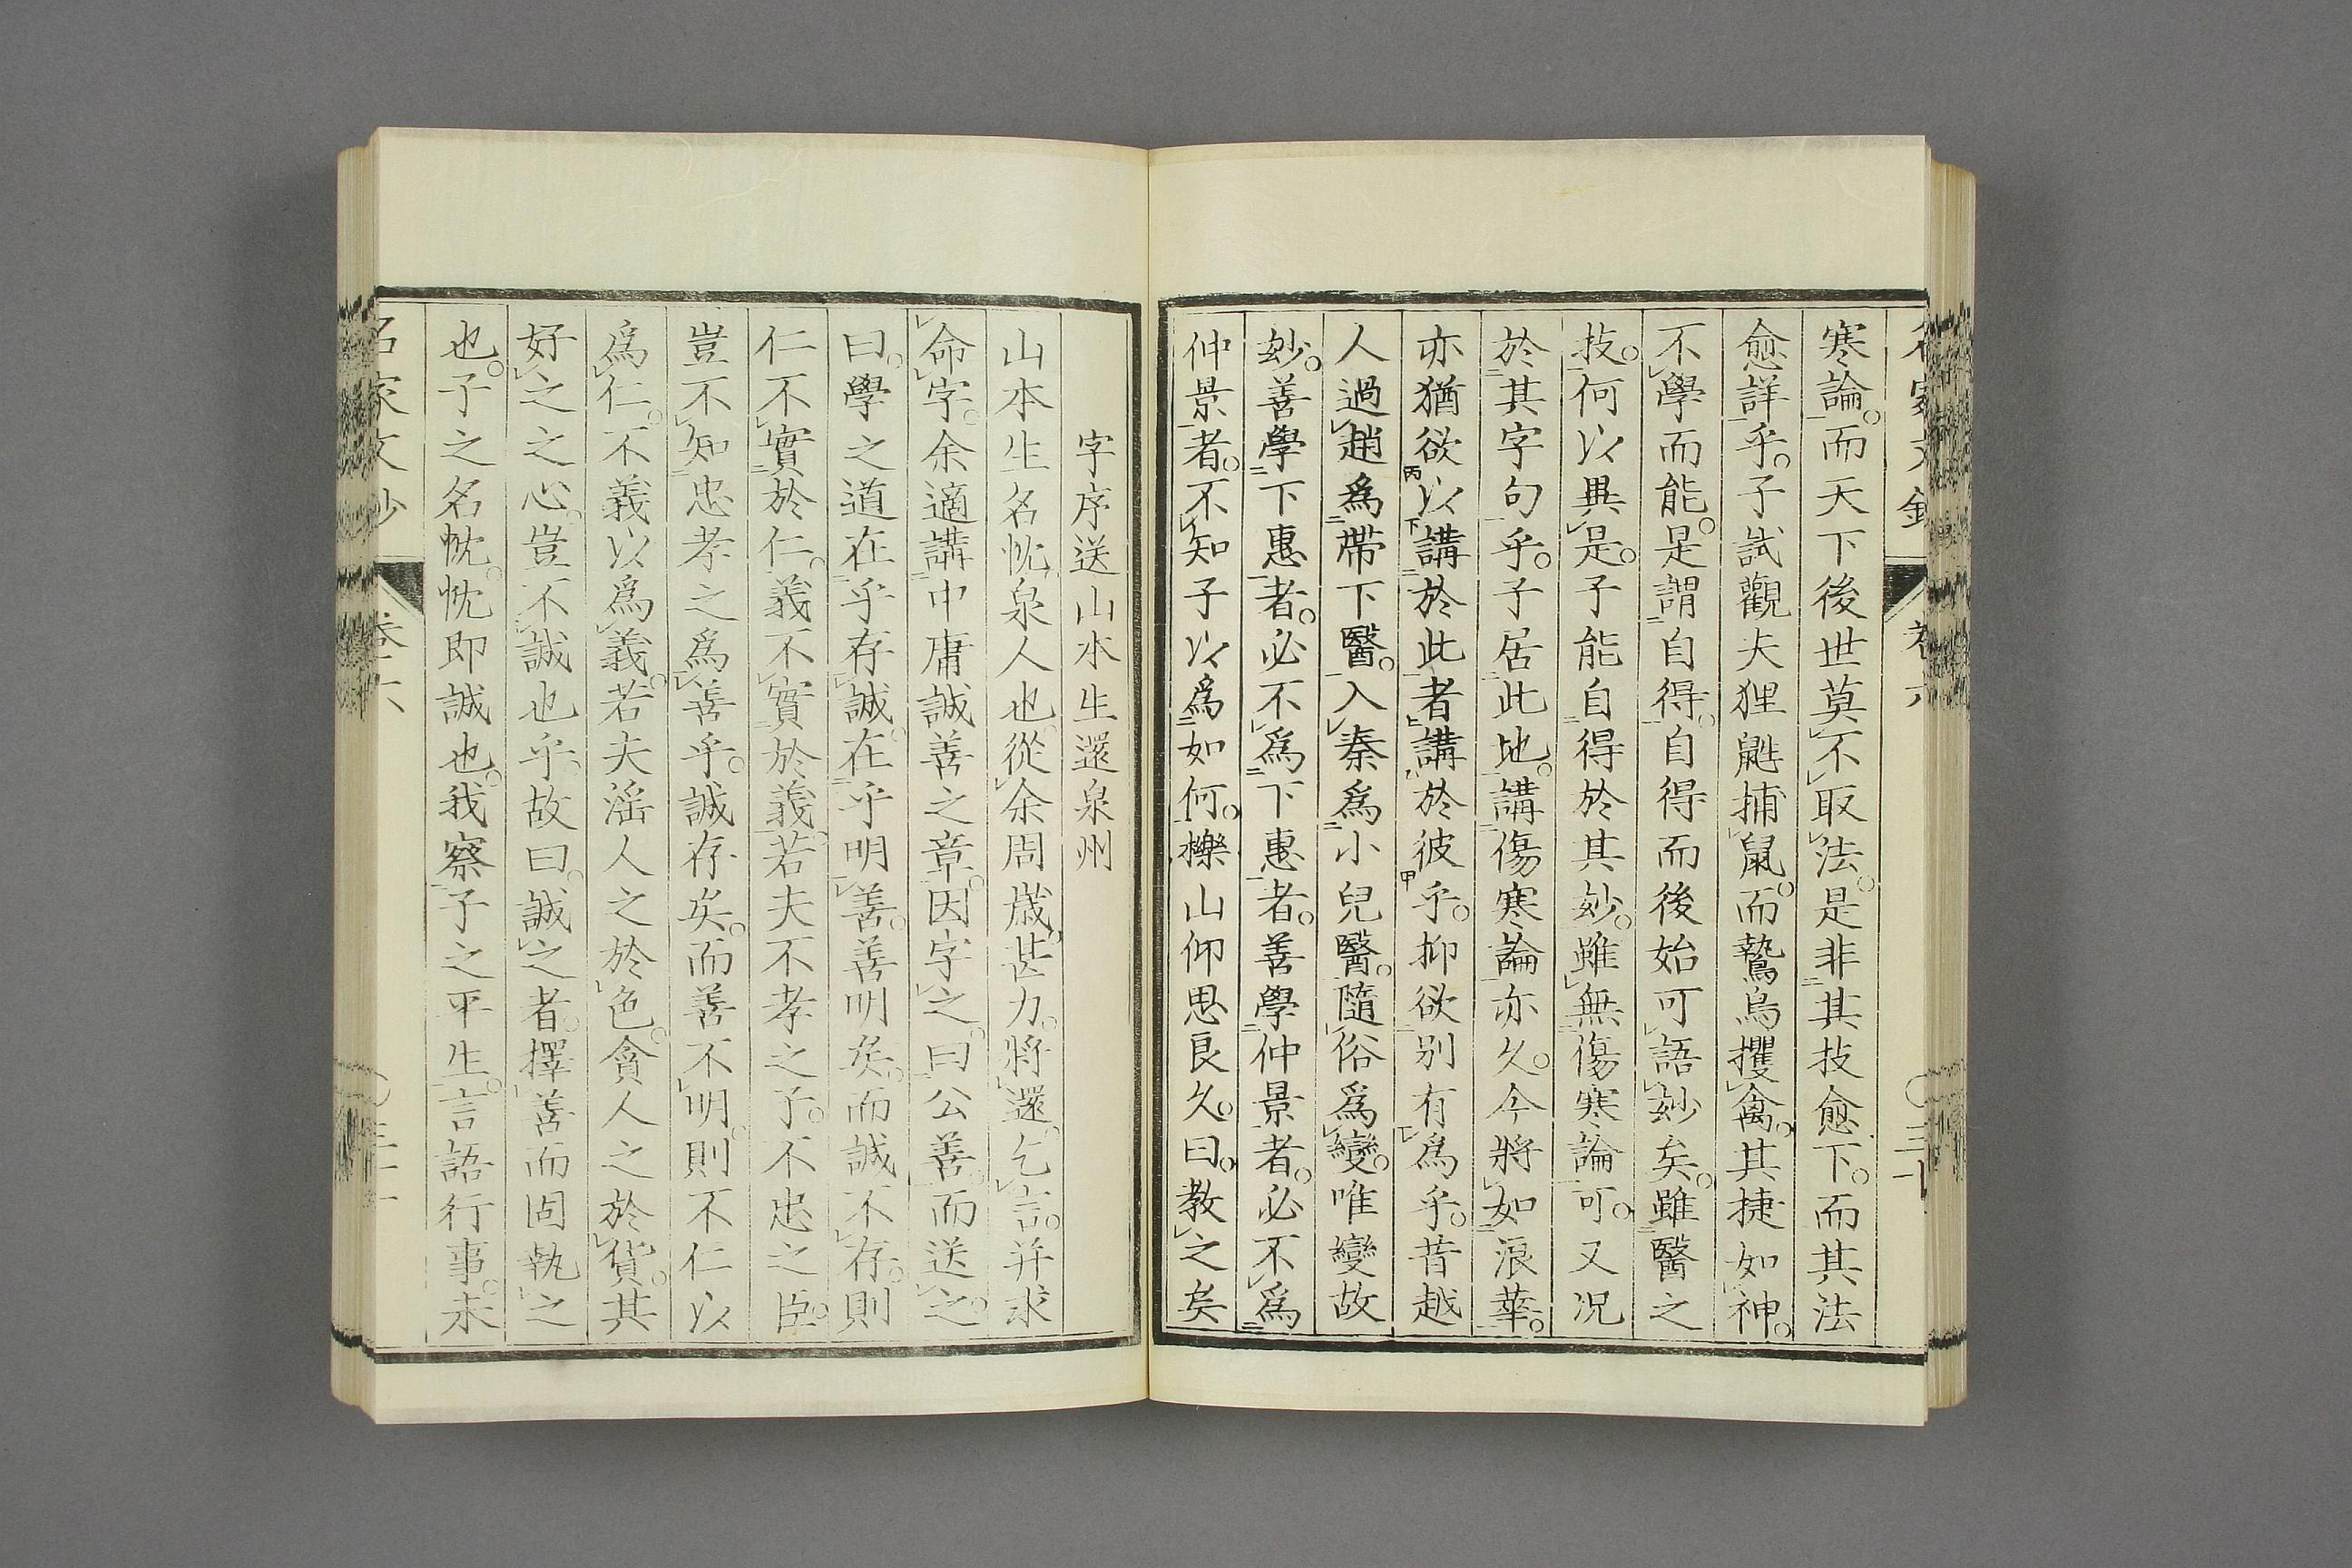 寒論。而天下後世莫不取法。是非其技愈下。而其法
愈詳乎。子試觀夫狸鼪捕鼠。而鷙鳥攫禽。其捷如神。
不學而能。是謂自得。自得而後始可語妙矣。雖醫之
技。何以異是。子能自得於其妙。雖無傷寒論可。又况
於其字句乎。子居此地。講傷寒論亦久。今將如浪華。
亦猶欲以講於此者講於彼乎。抑欲別有爲乎。昔越
人過趙爲帶下醫。入秦爲小兒醫。隨俗爲變。唯變故
妙。善學下惠者。必不爲下惠者。善學仲景者。必不爲
仲景者。不知子以爲如何。櫟山仰思良久。曰。教之矣
字序送山本生還泉州
山本生名忱泉人也。從余周歲甚力。將還。乞言。并求
命字。余適講中庸誠善之章。因字之。曰公善。而送之。
曰。學之道在乎存誠。在乎明善。善明矣。而誠不存。則
仁不實於仁。義不實於義。若夫不孝之子。不忠之臣。
豈不知忠孝之爲善乎。誠存矣。而善不明。則不仁以
爲仁。不義以爲義。若夫淫人之於色。貪人之於貨。其
好之之心。豈不誠也乎。故曰。誠之者。擇善而固執之
也。子之名忱。忱即誠也。我察子之平生。言語行事。未
名家文抄
卷六